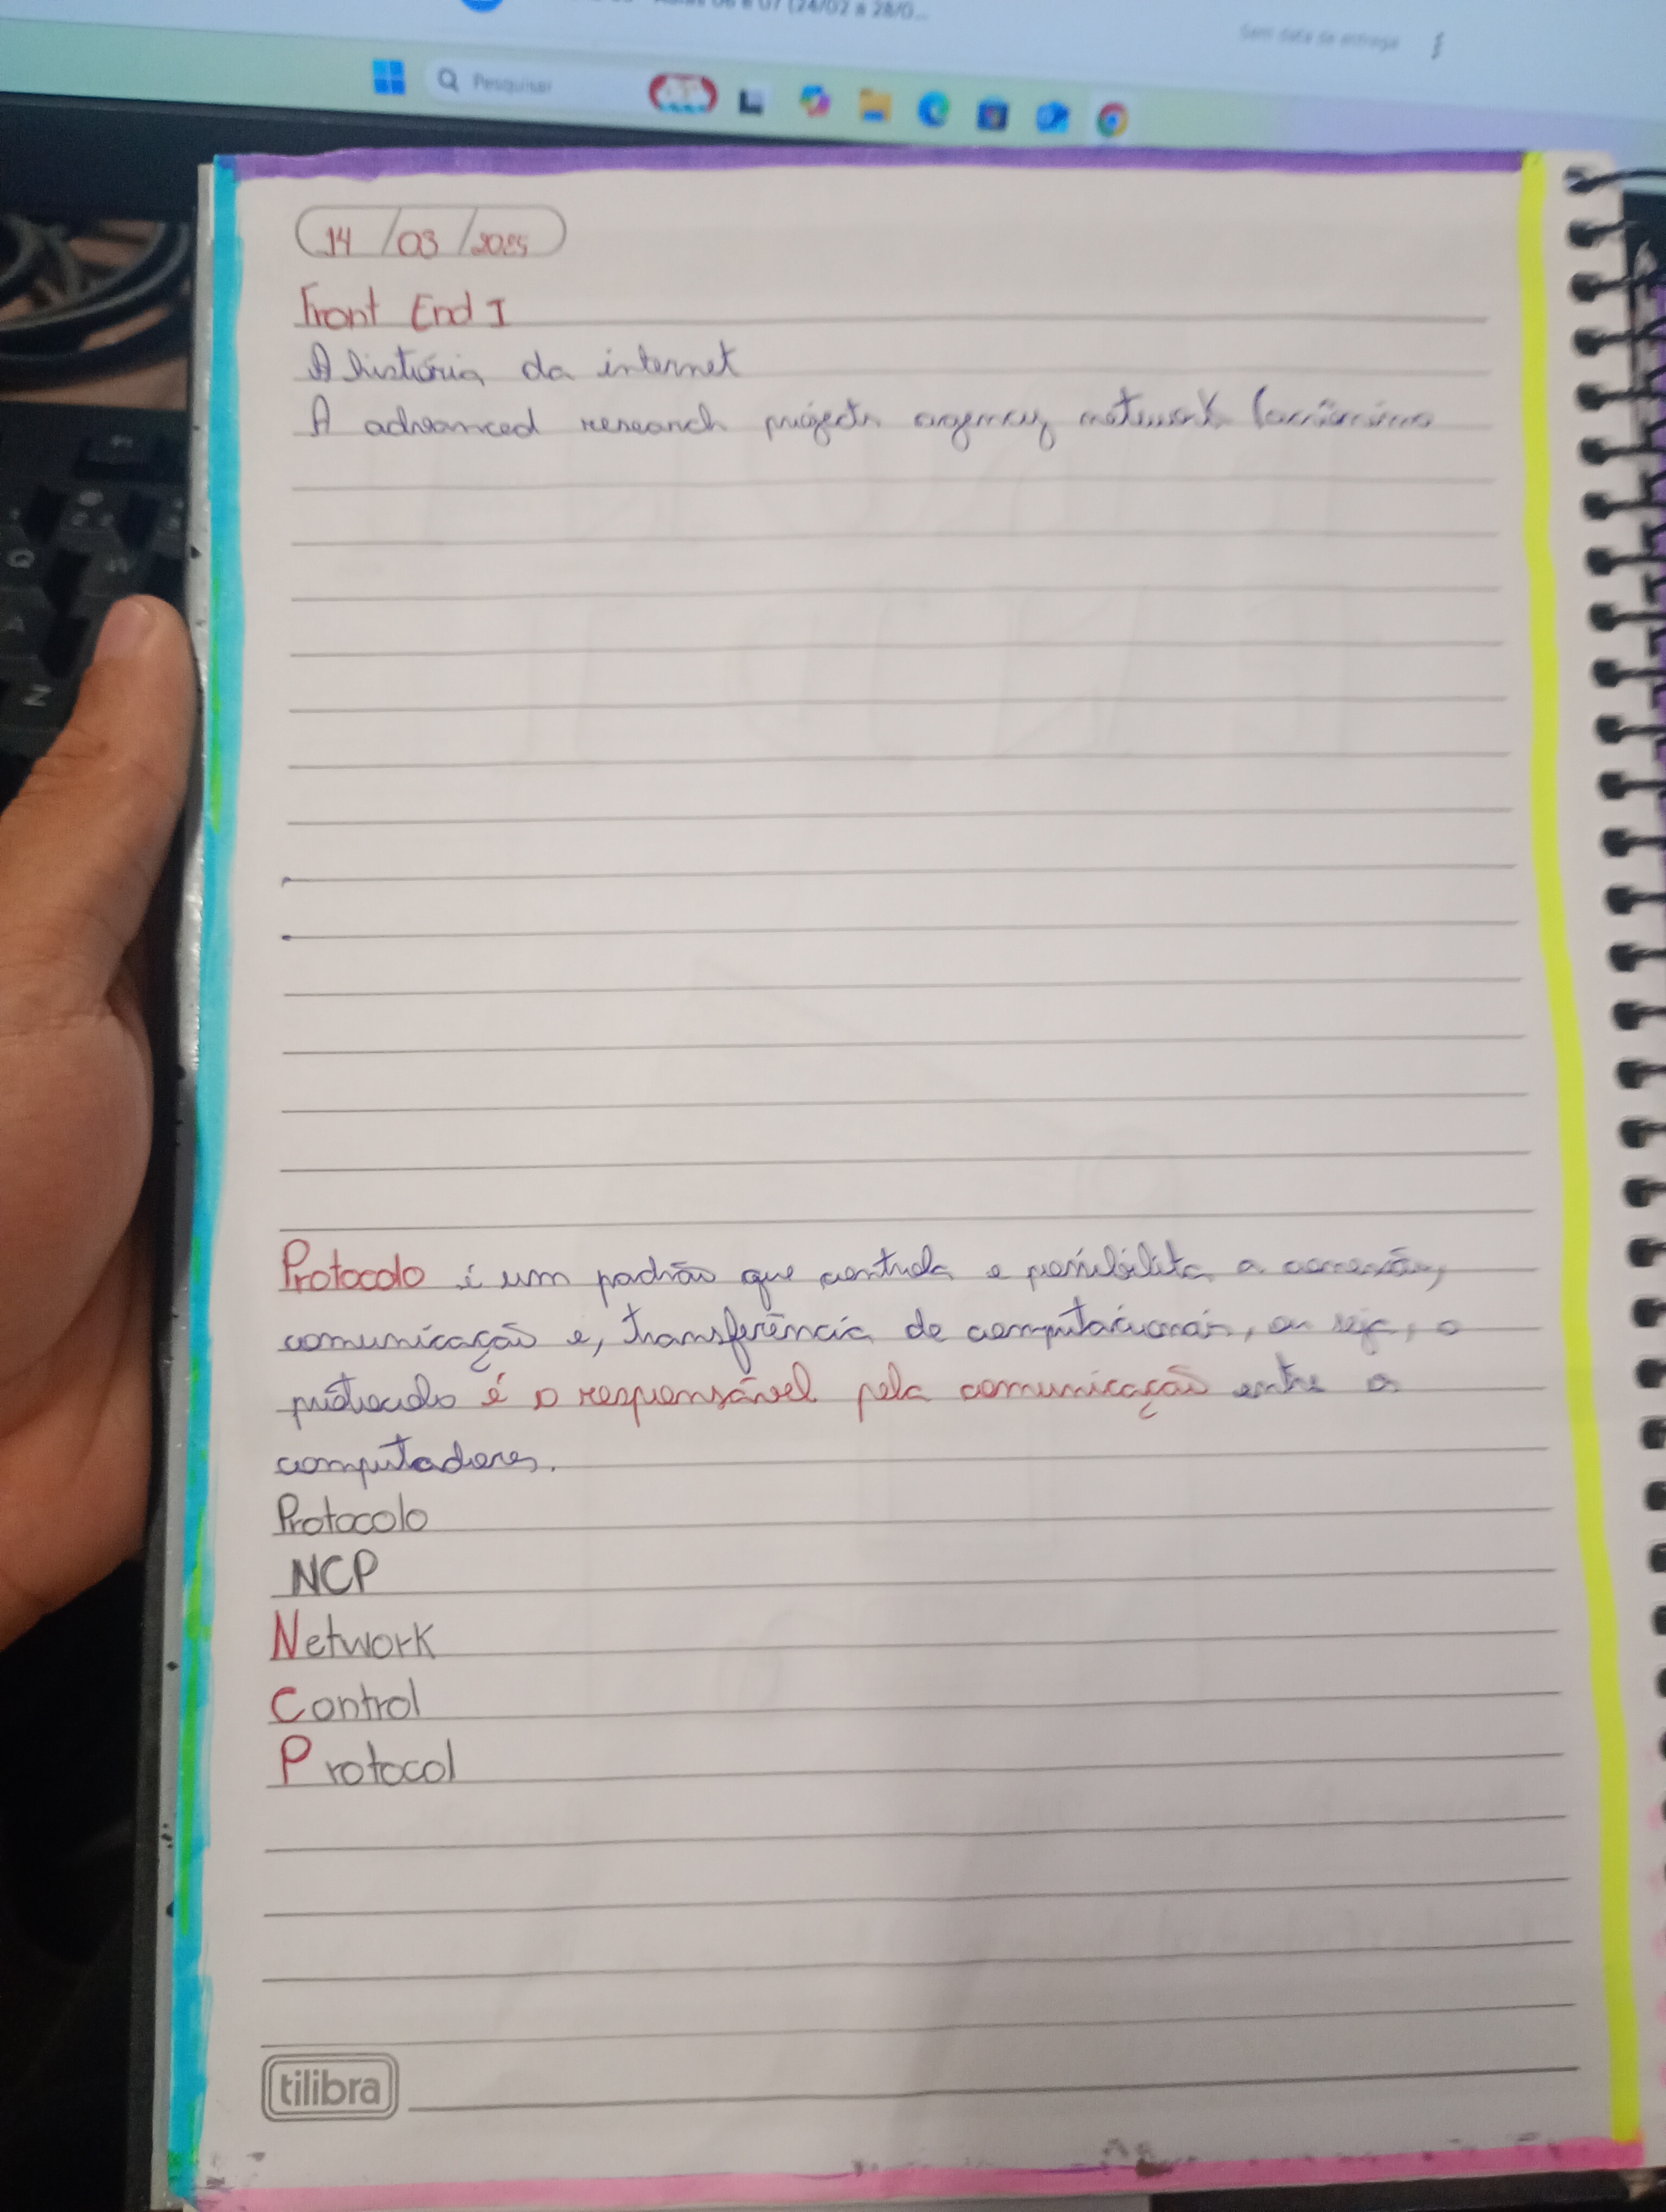 Aulas 06 e 07 (24/02 a 28/0...
Sem data de entrega
Pesquisar
14/03/2025
Front End I
A história da internet
A advanced research projects agency network (acrônimo
Protocolo é um padrão que controla e possibilita a conexão,
comunicação e, transferência de computacionais, ou seja, o
protocolo é o responsável pela comunicação entre o
computadores.
Protocolo
NCP
Network
Control
Protocol
tilibra
Q
A
Z